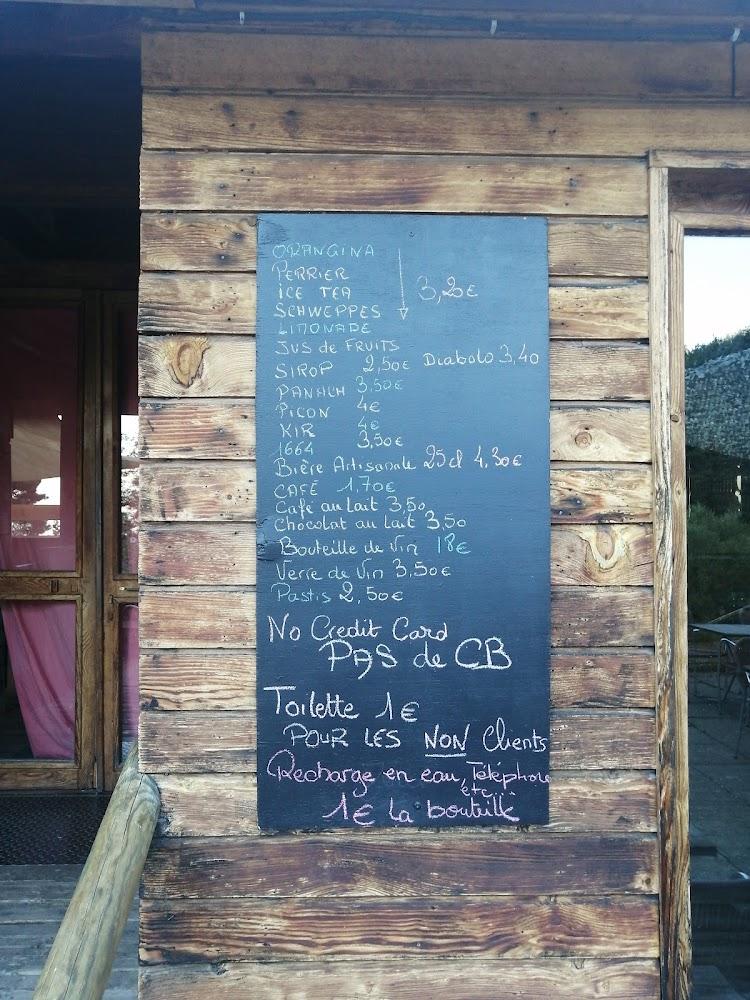 ORANGINA
PERRIER
ICE TEA 3,20€
SCHWEPPES
LIMONADE
JUS de FRUITS
SIROP 2,50€ Diabolo 3,40
PANACH 3,50€
PICON 4€
KIR 4€
1664 3,50€
Bière Artisanale 25cl 4,30€
CAFÉ 1,70€
Café au lait 3,50
Chocolat au lait 3,50
Bouteille de Vin 18€
Verre de Vin 3,50€
Pastis 2,50€
No Credit Card
PAS de CB
Toilette 1€
POUR LES NON Clients
Recharge en eau, Téléphone
etc...
1€ la bouteille